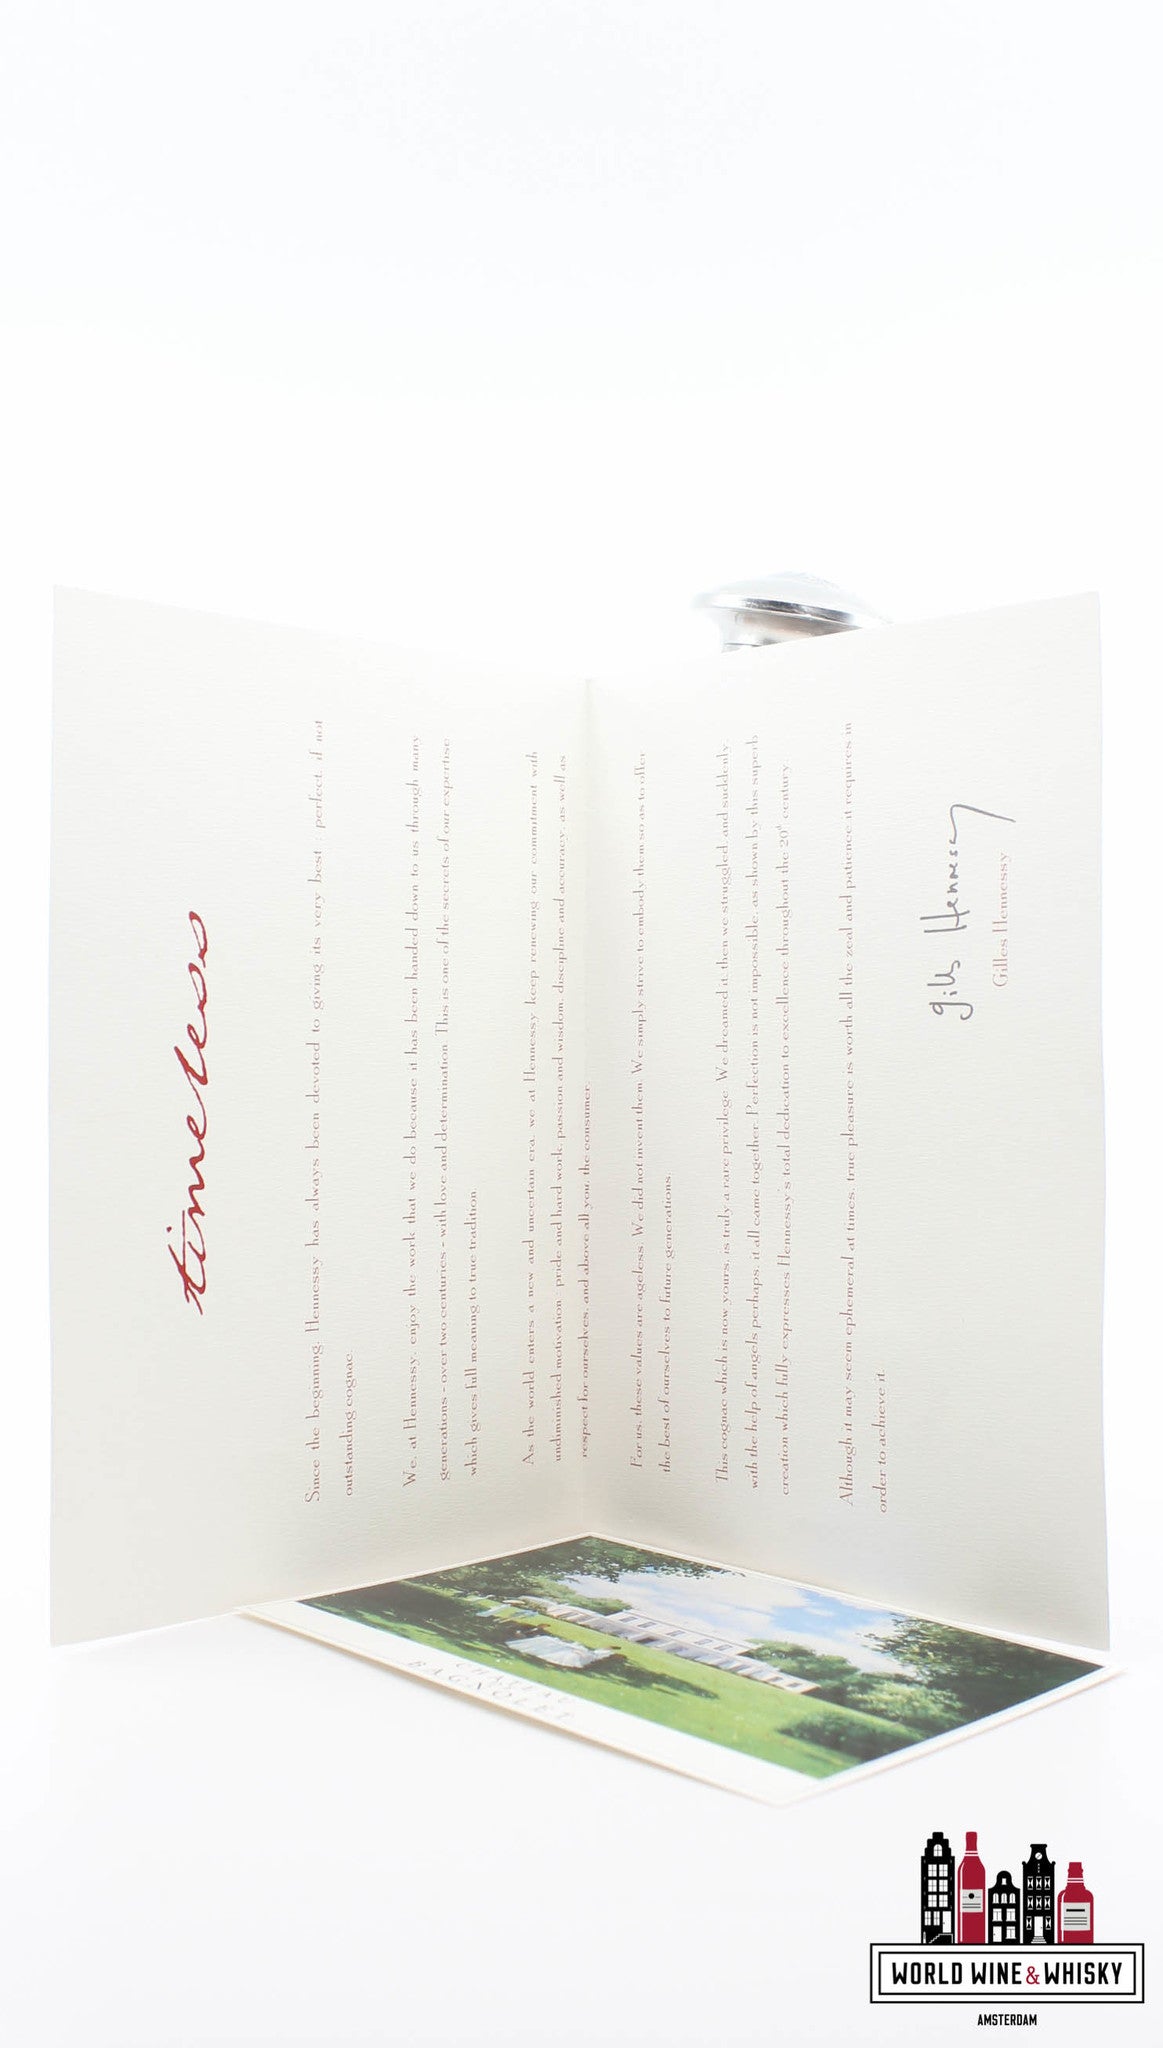 timeless
Since the beginning, Hennessy has always been devoted to giving its very best : perfect, if not
outstanding cognac.
We, at Hennessy, enjoy the work that we do because it has been handed down to us through many
generations - over two centuries - with love and determination. This is one of the secrets of our expertise,
which gives full meaning to true tradition.
As the world enters a new and uncertain era, we at Hennessy keep renewing our commitment with
undiminished motivation : pride and hard work, passion and wisdom, discipline and accuracy, as well as
respect for ourselves, and above all you, the consumer.
For us, these values are ageless. We did not invent them. We simply strive to embody them so as to offer
the best of ourselves to future generations.
This cognac which is now yours, is truly a rare privilege. We dreamed it, then we struggled, and suddenly,
with the help of angels perhaps, it all came together. Perfection is not impossible, as shown by this superb
creation which fully expresses Hennessy's total dedication to excellence throughout the 20th century.
Although it may seem ephemeral at times, true pleasure is worth all the zeal and patience it requires in
order to achieve it.
Gilles Hennessy
Gilles Hennessy
CHATEAU
DE
BAGNOLET
WORLD WINE & WHISKY
AMSTERDAM